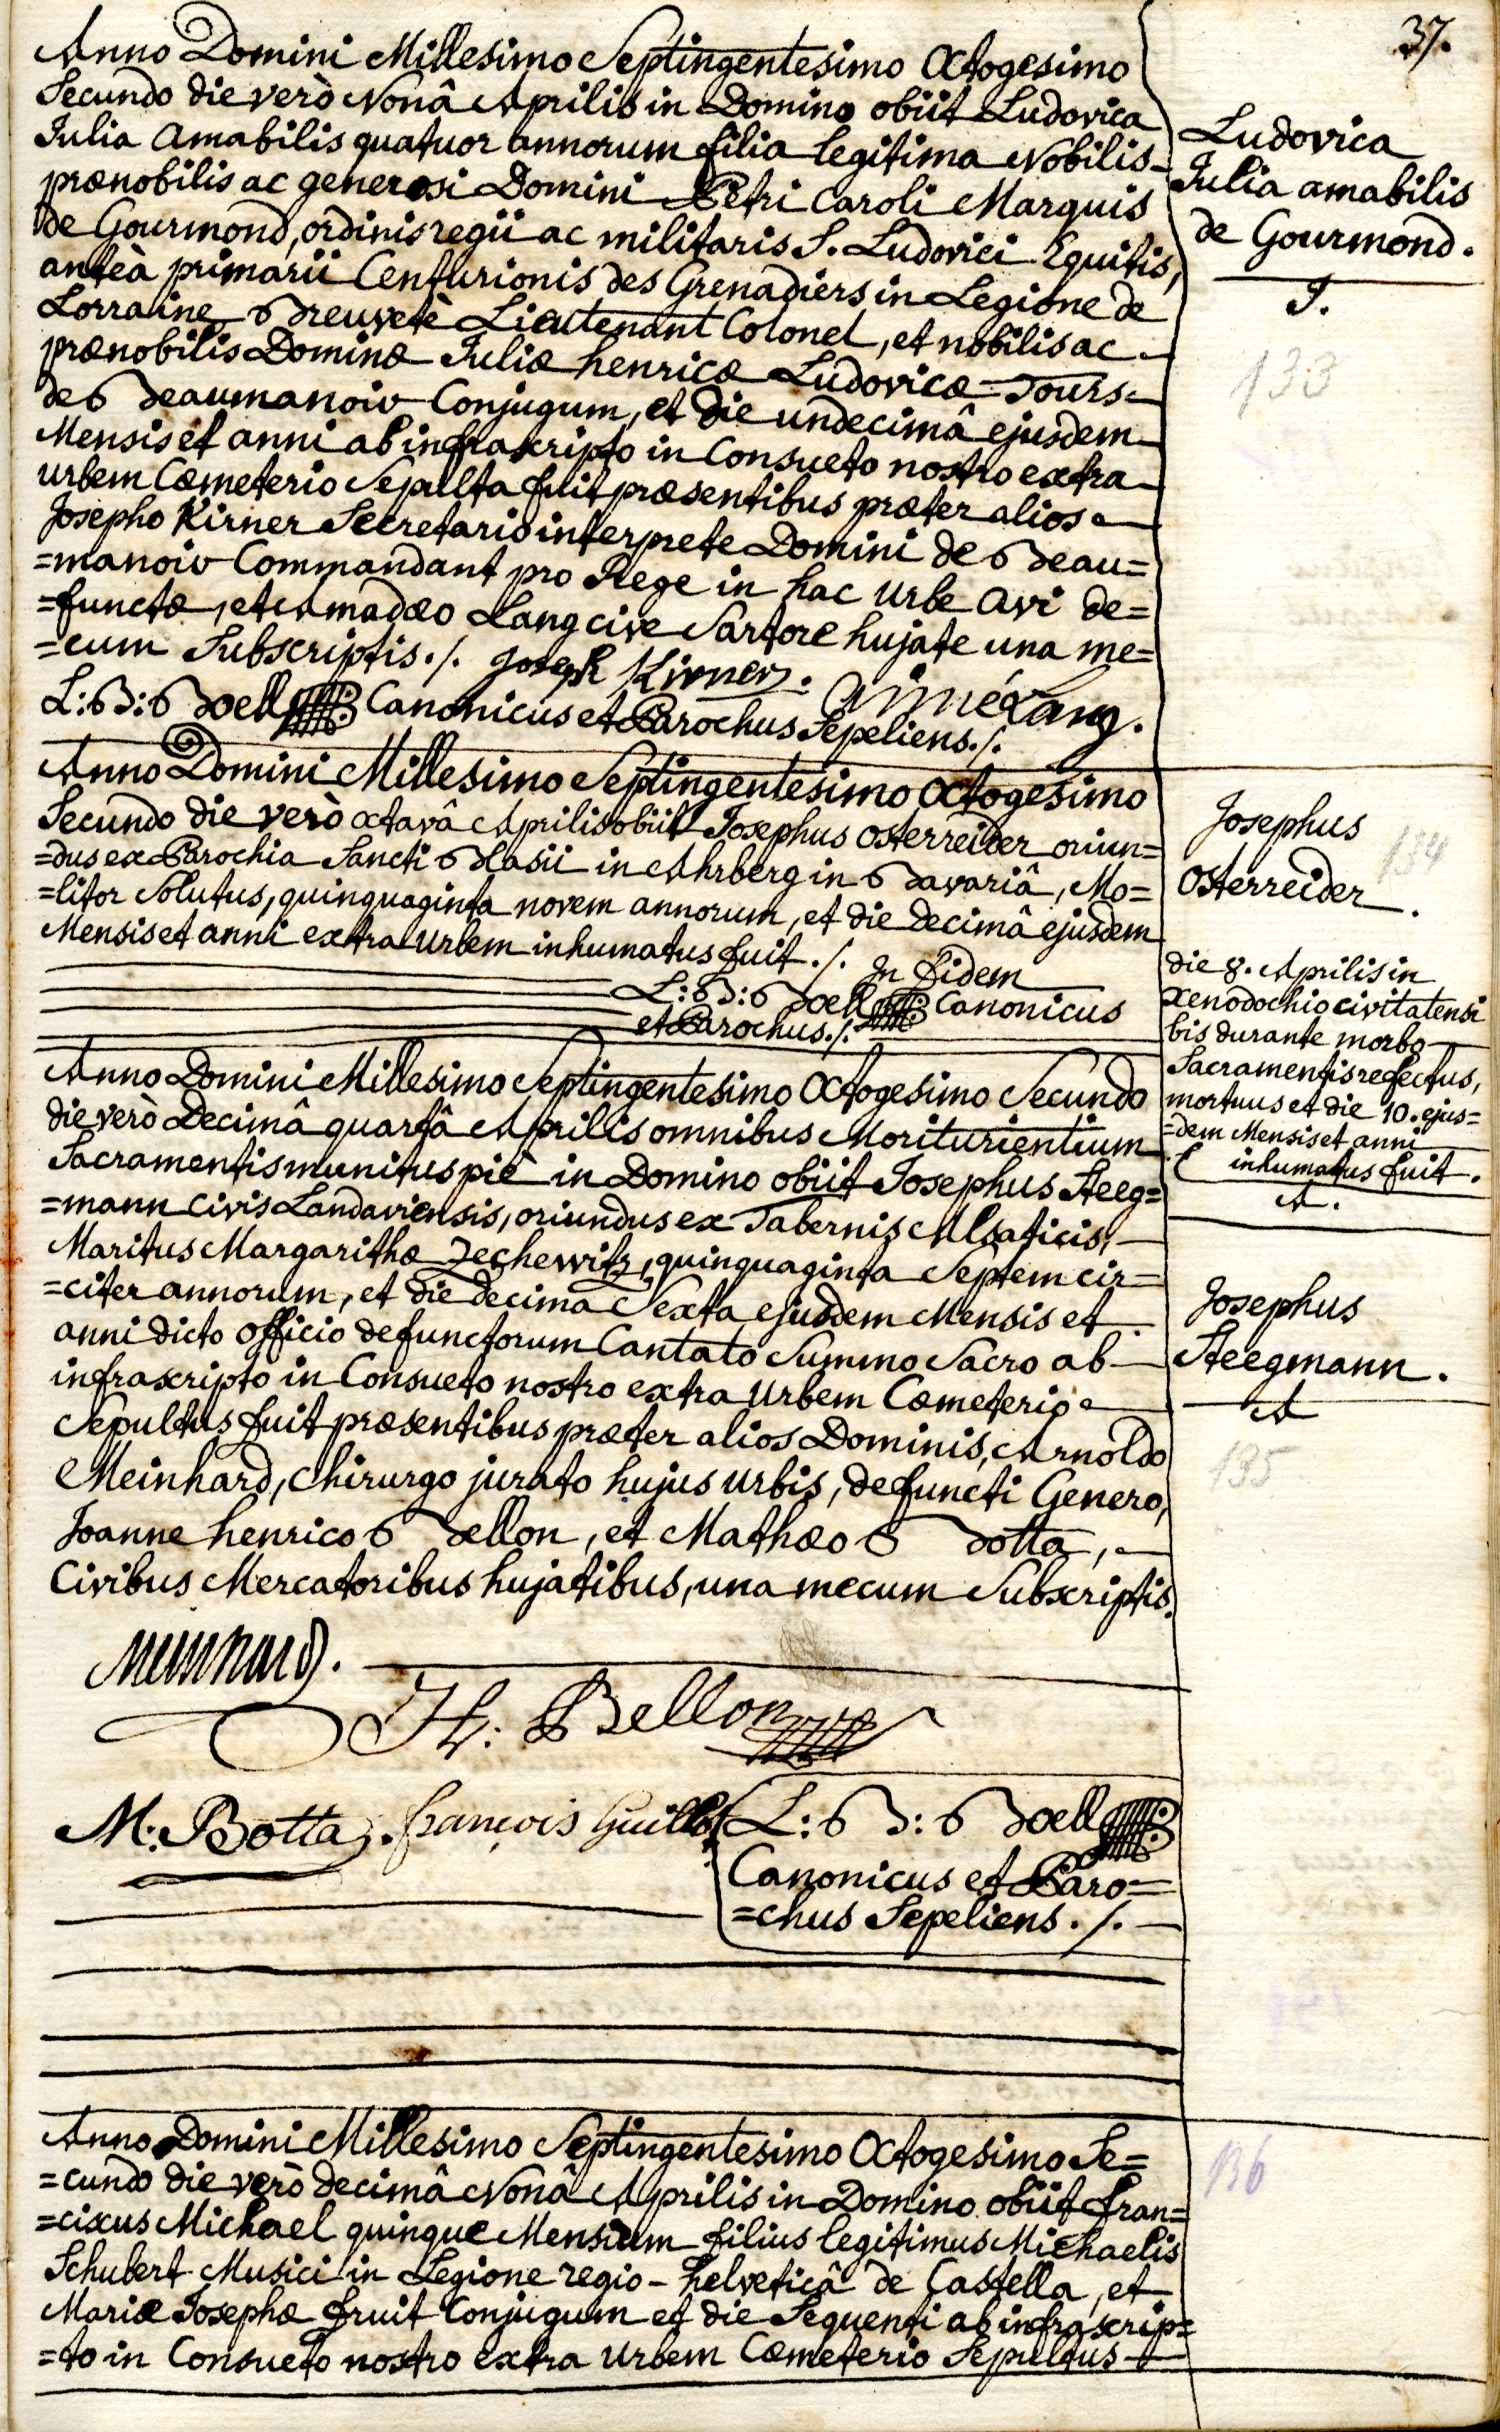 37.
Anno Domini Millesimo Septingentesimo Octogesimo
Secundo die verò Nonâ Aprilis in Domino obiit Ludovica
Julia Amabilis quatuor annorum filia legitima Nobilis-
prænobilis ac generosi Domini Petri Caroli Marquis
de Gourmond, ordinis regii ac militaris S. Ludovici Equitis,
anteà primarii Centurionis des Grenadiers in Legione de
Lorraine Breuvetè Lieutenant Colonel, et nobilis ac
prænobilis Dominæ Juliæ henricæ Ludovicæ Tours
de Beaumanoir Conjugum, et die undecimâ ejusdem
Mensis et anni ab infrascripto in Consueto nostro extra
urbem Cœmeterio Sepulta fuit præsentibus præter alios
Josepho Kirner Secretario interprete Domini de Beau=
=manoir Commandant pro Rege in hac Urbe Avi de=
=functæ, et Amadæo Lang cive Sartore hujate una me=
=cum Subscriptis./. Joseph Kirner.
Aimé Lang.
L:B:Boell Canonicus et Parochus Sepeliens./.
Ludovica
Julia amabilis
de Gourmond.
J.
133
Anno Domini Millesimo Septingentesimo Octogesimo
Secundo die verò octavâ Aprilis obiit Josephus Osterreider oriun=
=dus ex Parochia Sancti Blasii in Ahrberg in Bavariâ, Mo=
=litor Solutus, quinquaginta novem annorum, et die decimâ ejusdem
Mensis et anni extra Urbem inhumatus fuit./. In fidem
L:B:Boell Canonicus
et Parochus./.
Josephus
Osterreider.
134
die 8. Aprilis in
xenodochio civitatensi
bis durante morbo
Sacramentis refectus,
mortuus et die 10. ejus=
=dem Mensis et anni
inhumatus fuit.
A.
Anno Domini Millesimo Septingentesimo Octogesimo Secundo
die verò Decimâ quartâ Aprilis omnibus Moriturientium
Sacramentis munitus piè in Domino obiit Josephus Steeg=
=mann Civis Landaviensis, oriundus ex Tabernis Alsaticis,
Maritus Margarithæ Zechewitz, quinquaginta Septem cir=
=citer annorum, et die decima Sexta ejusdem Mensis et
anni dicto officio defunctorum Cantato Summo Sacro ab
infrascripto in Consueto nostro extra Urbem Cœmeterio
Sepultus fuit præsentibus præter alios Dominis, Arnoldo
Meinhard, Chirurgo jurato hujus urbis, defuncti Genero,
Joanne henrico Bellon, et Mathæo Botta,
Civibus Mercatoribus hujatibus, una mecum Subscriptis.
Josephus
Steegmann.
A
135
Meinhard.
JH: Bellon
M: Botta. françois Guillo
L:B:Boell
Canonicus et Paro=
=chus Sepeliens./.
Anno Domini Millesimo Septingentesimo Octogesimo Se=
=cundo die verò decimâ Nonâ Aprilis in Domino obiit Fran=
=ciscus Michael quinque Mensium filius legitimus Michaelis
Schubert Musici in Legione regio-helveticâ de Castella, et
Mariæ Josephæ Fruit Conjugum et die Sequenti ab infrascrip=
=to in Consueto nostro extra Urbem Cœmeterio Sepultus
136